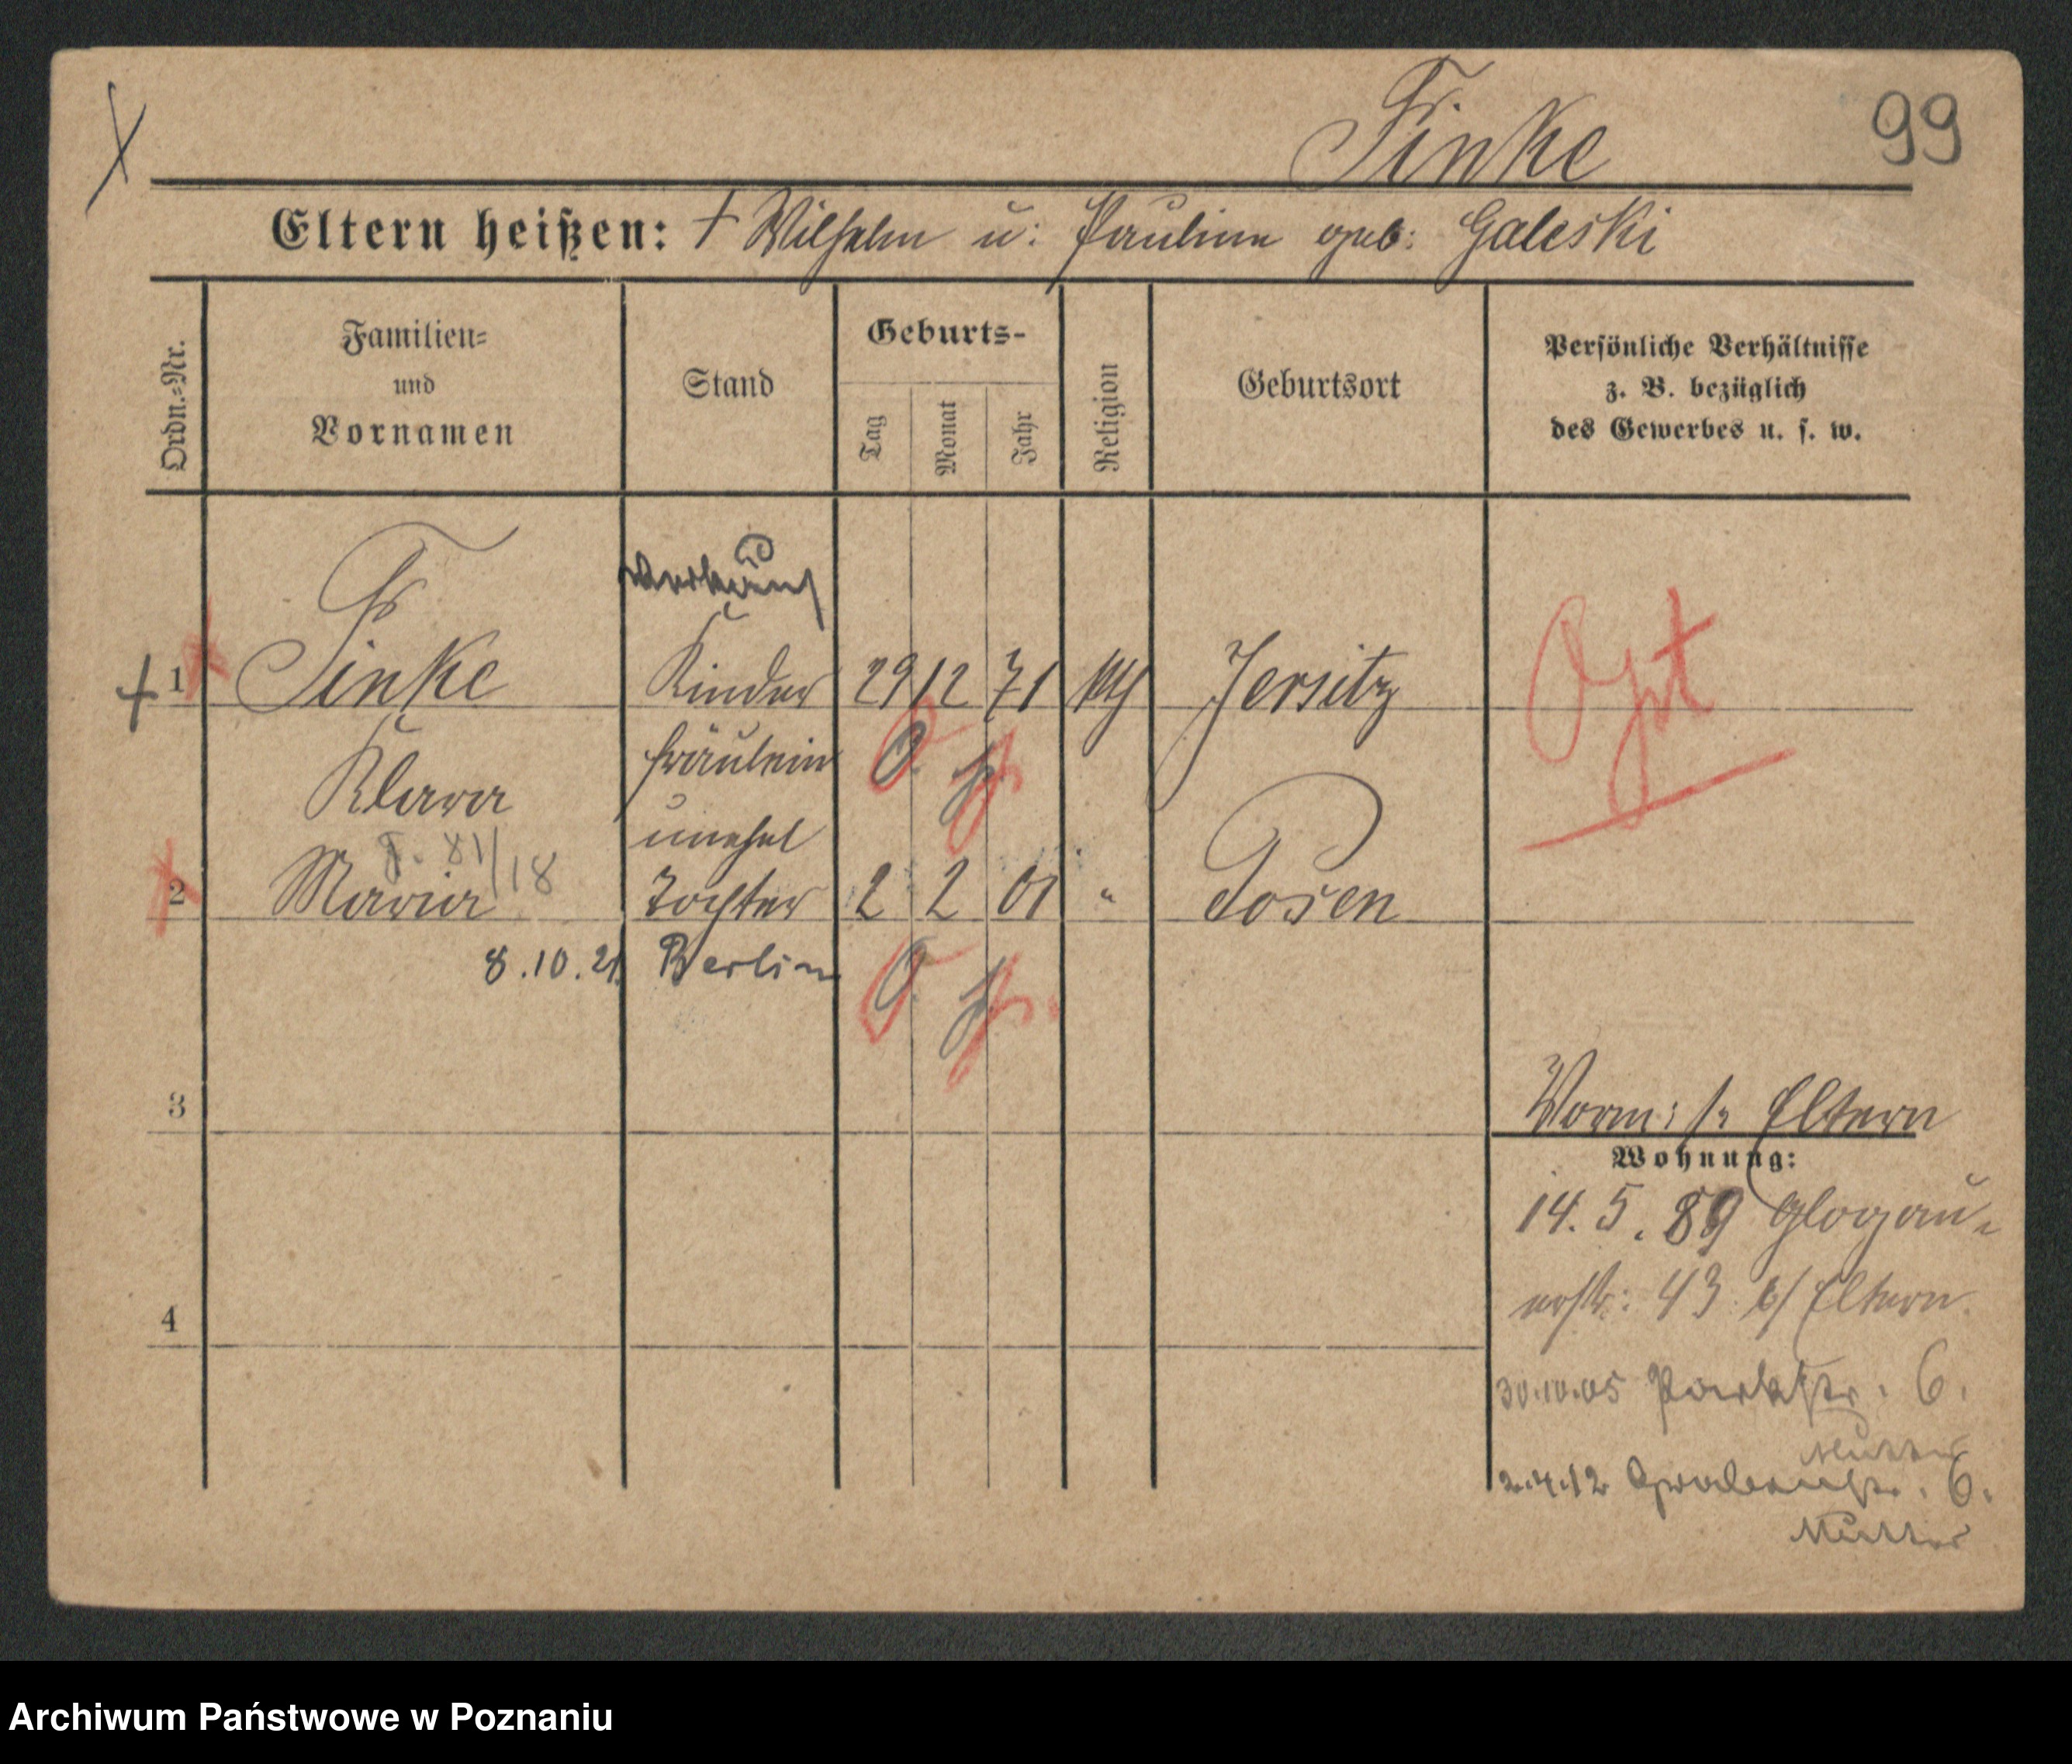 Finke
99
Eltern heißen: † Wilhelm u: Pauline geb: Galeski
Ordn.-Nr.
Familien- und Vornamen
Stand
Geburts-
Tag
Monat
Jahr
Religion
Geburtsort
Persönliche Verhältnisse z. B. bezüglich des Gewerbes u. s. w.
1 Finke Kinder 29 12 71 kth Jersitz Opt
Klara fräulein
unehel
81/18
2 Maria Tochter 2 2 01 " Posen
8.10.21 Berlin
3
Vorm: s. Eltern
Wohnung:
14. 5. 89 Glogau-
erstr: 43 b/ Eltern.
4
30.10.05 Parkstr. 6.
Mutter
2.4.12 Grabenstr. 6.
Mutter
Archiwum Państwowe w Poznaniu